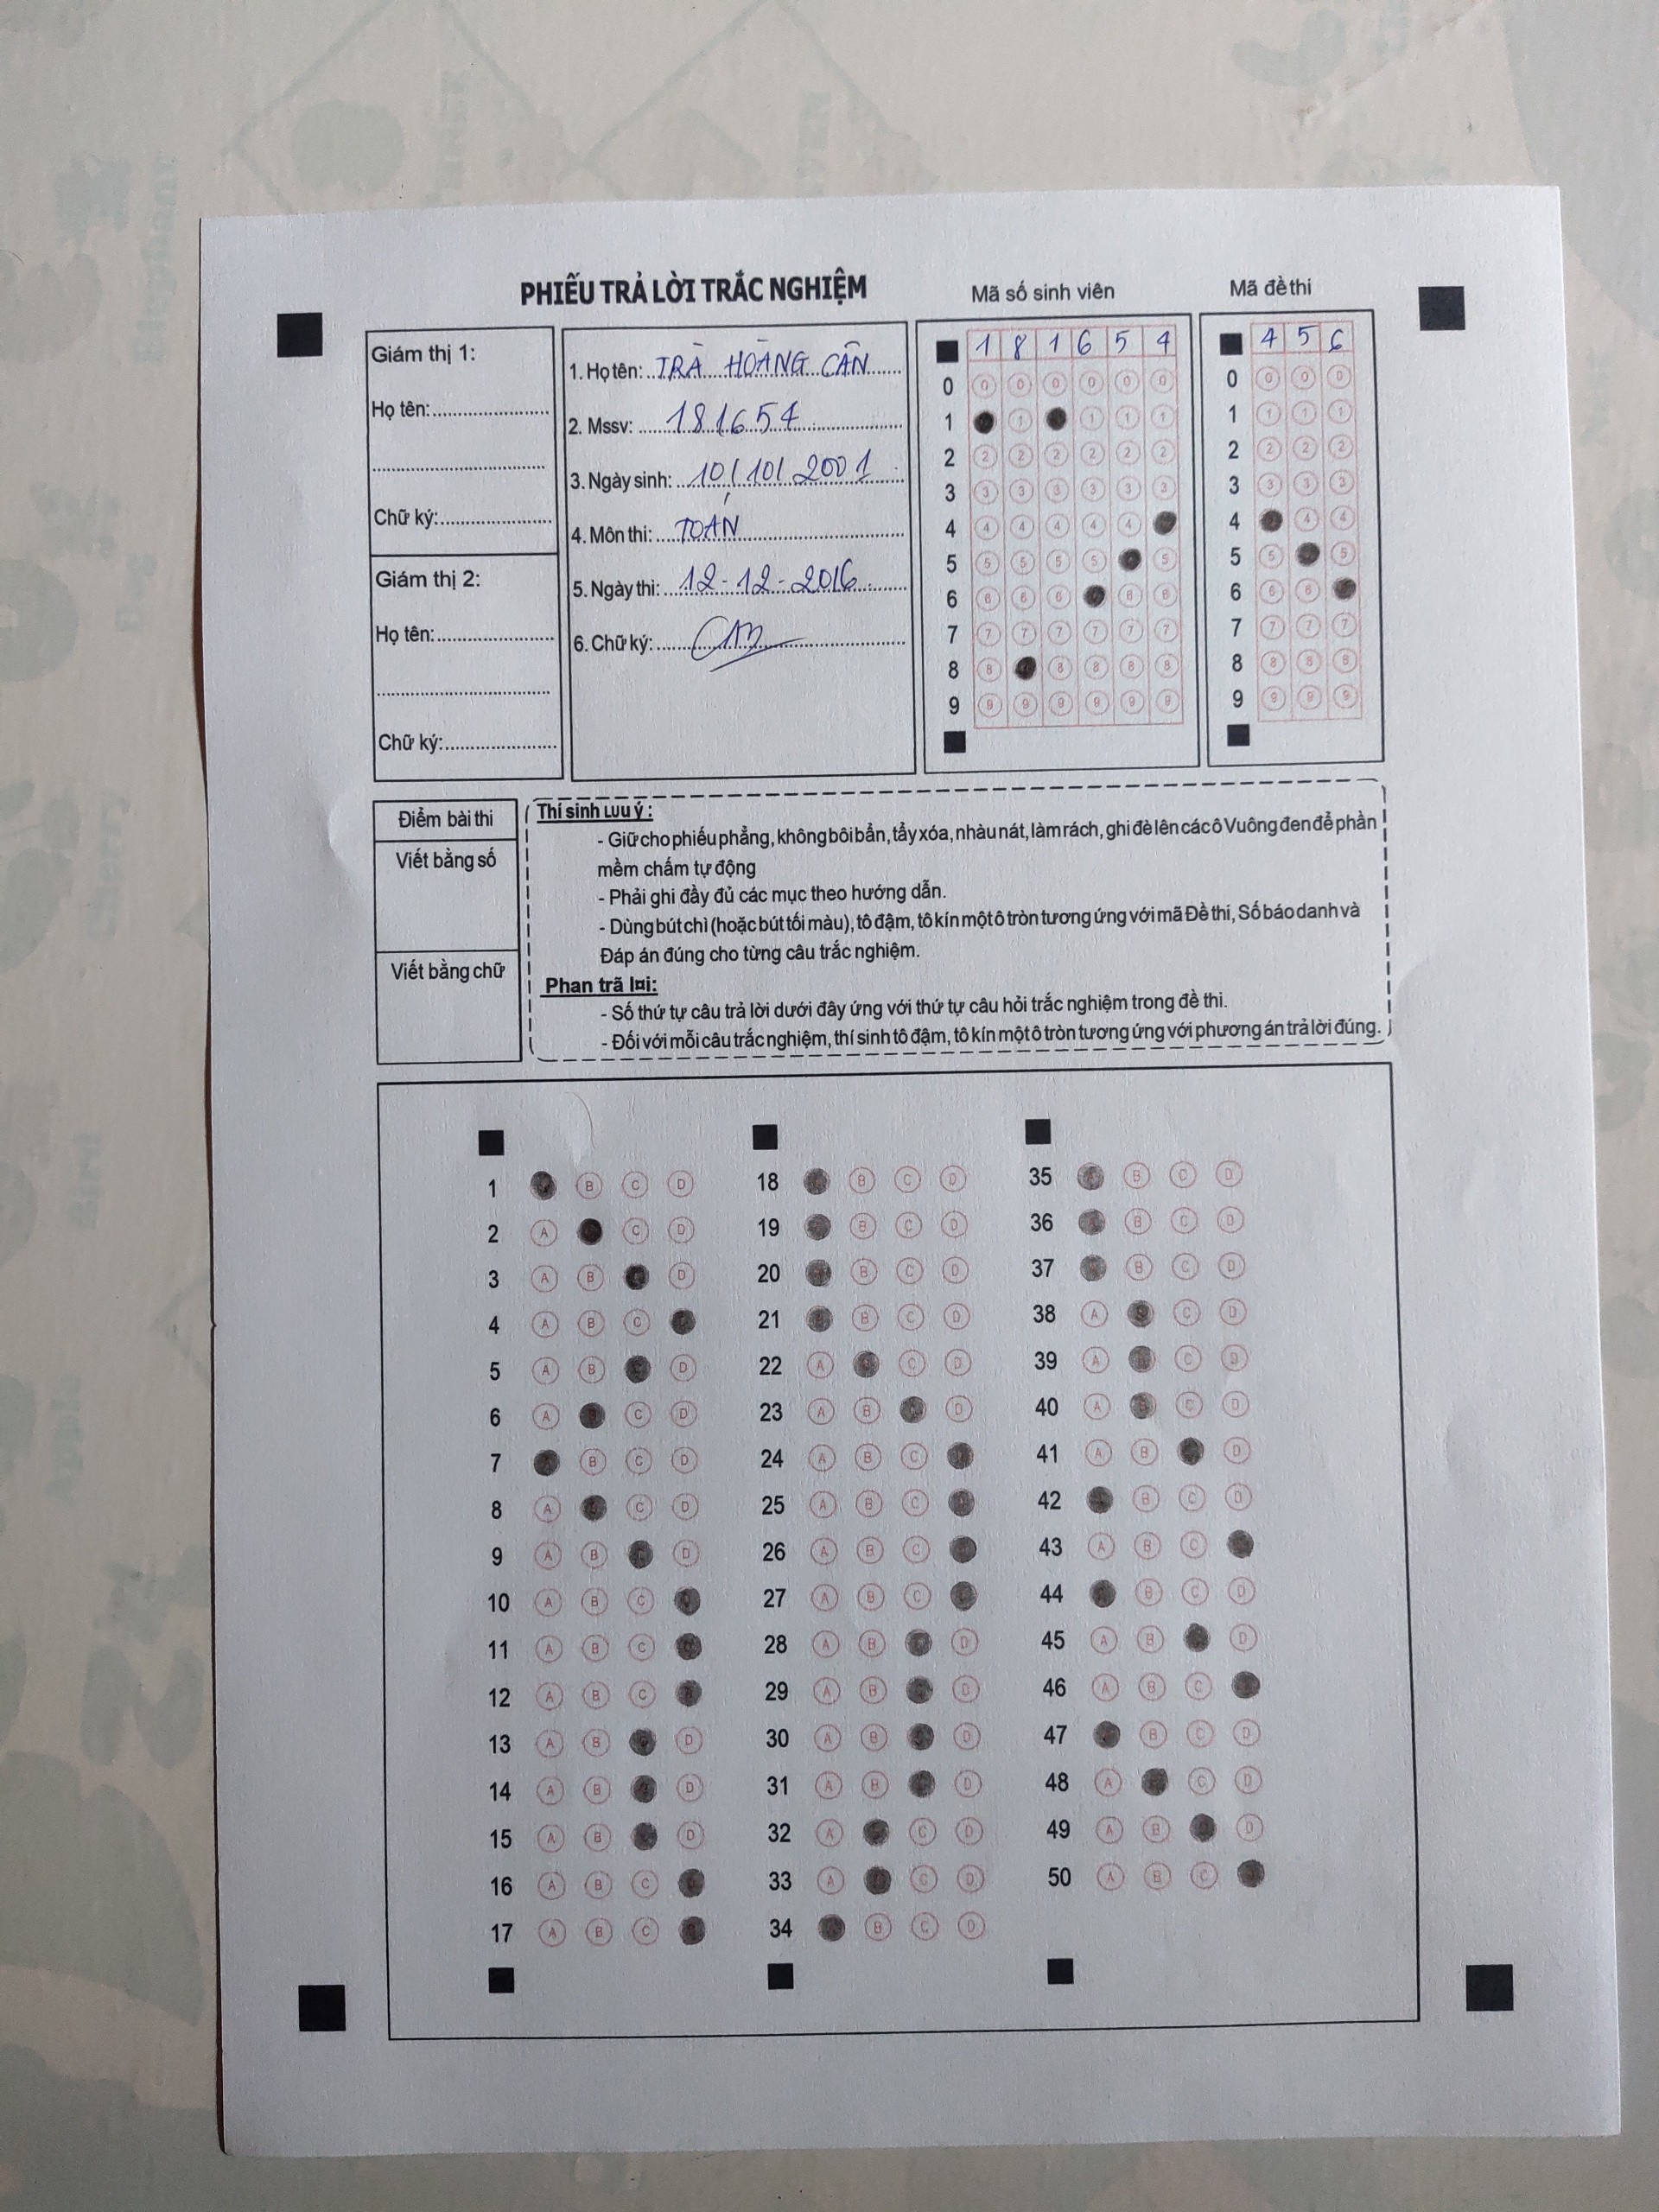 PHIẾU TRẢ LỜI TRẮC NGHIỆM
Mã số sinh viên
Mã đề thi
Giám thị 1:
Họ tên:
Chữ ký:
Giám thị 2:
Họ tên:
Chữ ký:
1. Họ tên: TRÀ HOÀNG CẦN
2. Mssv: 181654
3. Ngày sinh: 10/10/2001
4. Môn thi: TOÁN
5. Ngày thi: 12-12-2016
6. Chữ ký:
1 8 1 6 5 4
0 0 0 0 0 0 0
1 1 1 1 1
2 2 2 2 2 2 2
3 3 3 3 3 3 3
4 4 4 4 4 4
5 5 5 5 5 5
6 6 6 6 6 6
7 7 7 7 7 7 7
8 8 8 8 8 8
9 9 9 9 9 9 9
4 5 6
0 0 0 0
1 1 1 1
2 2 2 2
3 3 3 3
4 4 4
5 5 5
6 6 6
7 7 7 7
8 8 8 8
9 9 9 9
Điểm bài thi
Viết bằng số
Viết bằng chữ
Thí sinh LƯU ý :
- Giữ cho phiếu phẳng, không bôi bẩn, tẩy xóa, nhàu nát, làm rách, ghi đè lên các ô Vuông đen để phần
mềm chấm tự động
- Phải ghi đầy đủ các mục theo hướng dẫn.
- Dùng bút chì (hoặc bút tối màu), tô đậm, tô kín một ô tròn tương ứng với mã Đề thi, Số báo danh và
Đáp án đúng cho từng câu trắc nghiệm.
Phan trã l¤i:
- Số thứ tự câu trả lời dưới đây ứng với thứ tự câu hỏi trắc nghiệm trong đề thi.
- Đối với mỗi câu trắc nghiệm, thí sinh tô đậm, tô kín một ô tròn tương ứng với phương án trả lời đúng.
1 B C D
2 A C D
3 A B D
4 A B C
5 A B D
6 A C D
7 B C D
8 A C D
9 A B D
10 A B C
11 A B C
12 A B C
13 A B D
14 A B D
15 A B D
16 A B C
17 A B C
18 B C D
19 B C D
20 B C D
21 B C D
22 A C D
23 A B D
24 A B C
25 A B C
26 A B C
27 A B C
28 A B D
29 A B D
30 A B D
31 A B D
32 A C D
33 A C D
34 B C D
35 B C D
36 B C D
37 B C D
38 A C D
39 A C D
40 A C D
41 A B D
42 B C D
43 A B C
44 B C D
45 A B D
46 A B C
47 B C D
48 A C D
49 A B D
50 A B C